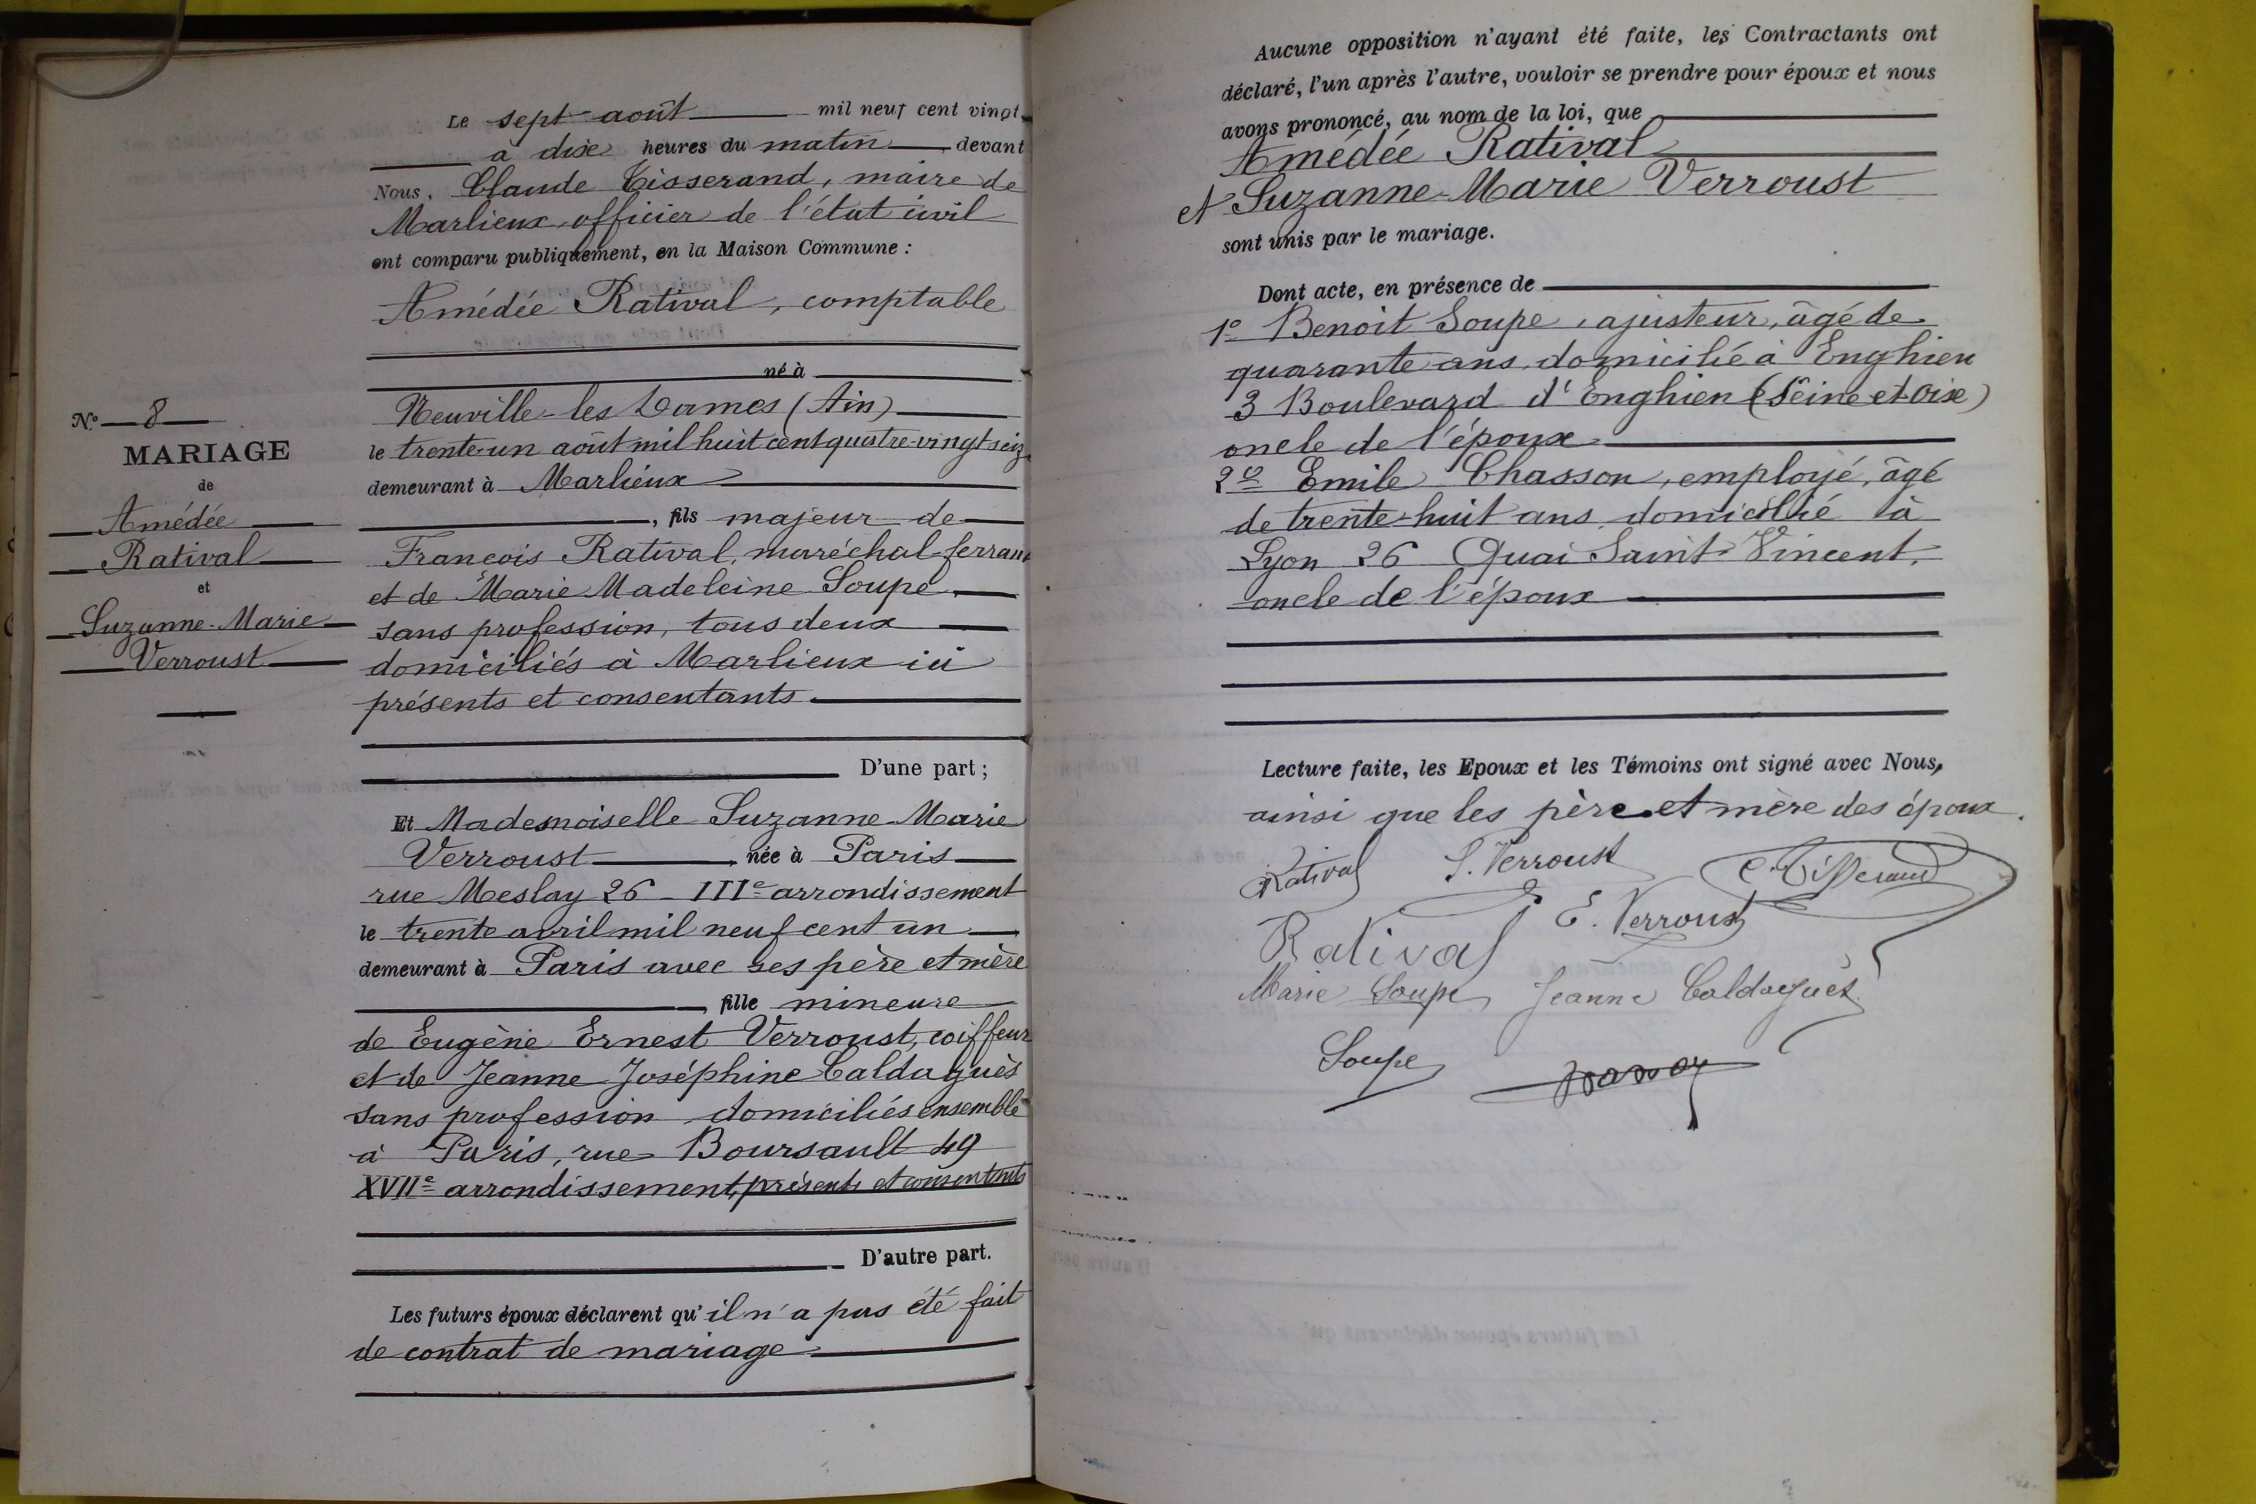 N° 8
MARIAGE
de
Amédée
Ratival
et
Suzanne-Marie
Verroust
Le sept août mil neuf cent vingt
à dix heures du matin devant
Nous, Claude Tisserand, maire de
Marlieux, officier de l'état civil
ont comparu publiquement, en la Maison Commune :
Amédée Ratival, comptable
né à
Neuville-les Dames (Ain)
le trente-un août mil huit cent quatre-vingt seize
demeurant à Marlieux
, fils majeur de
François Ratival, maréchal-ferrant
et de Marie Madeleine Soupe,
sans profession, tous deux
domiciliés à Marlieux ici
présents et consentants
D'une part ;
Et Mademoiselle Suzanne-Marie
Verroust née à Paris
rue Meslay 26 - IIIe arrondissement
le trente avril mil neuf cent un
demeurant à Paris avec ses père et mère
, fille mineure
de Eugène Ernest Verroust, coiffeur
et de Jeanne Joséphine Caldaguès
sans profession domiciliés ensemble
à Paris, rue Boursault 49
XVIIe arrondissement, présents et consentants
D'autre part.
Les futurs époux déclarent qu'il n'a pas été fait
de contrat de mariage
Aucune opposition n'ayant été faite, les Contractants ont
déclaré, l'un après l'autre, vouloir se prendre pour époux et nous
avons prononcé, au nom de la loi, que
Amédée Ratival
et Suzanne-Marie Verroust
sont unis par le mariage.
Dont acte, en présence de
1° Benoit Soupe, ajusteur, âgé de
quarante ans, domicilié à Enghien
3 Boulevard d'Enghien (Seine et Oise)
oncle de l'époux
2° Emile Chasson, employé, âgé
de trente-huit ans, domicilié à
Lyon 26 Quai Saint-Vincent,
oncle de l'époux
Lecture faite, les Epoux et les Témoins ont signé avec Nous,
ainsi que les père et mère des époux.
Ratival S. Verroust C. Tisserand
Ratival E. Verroust
Marie Soupe Jeanne Caldaguès
Soupe